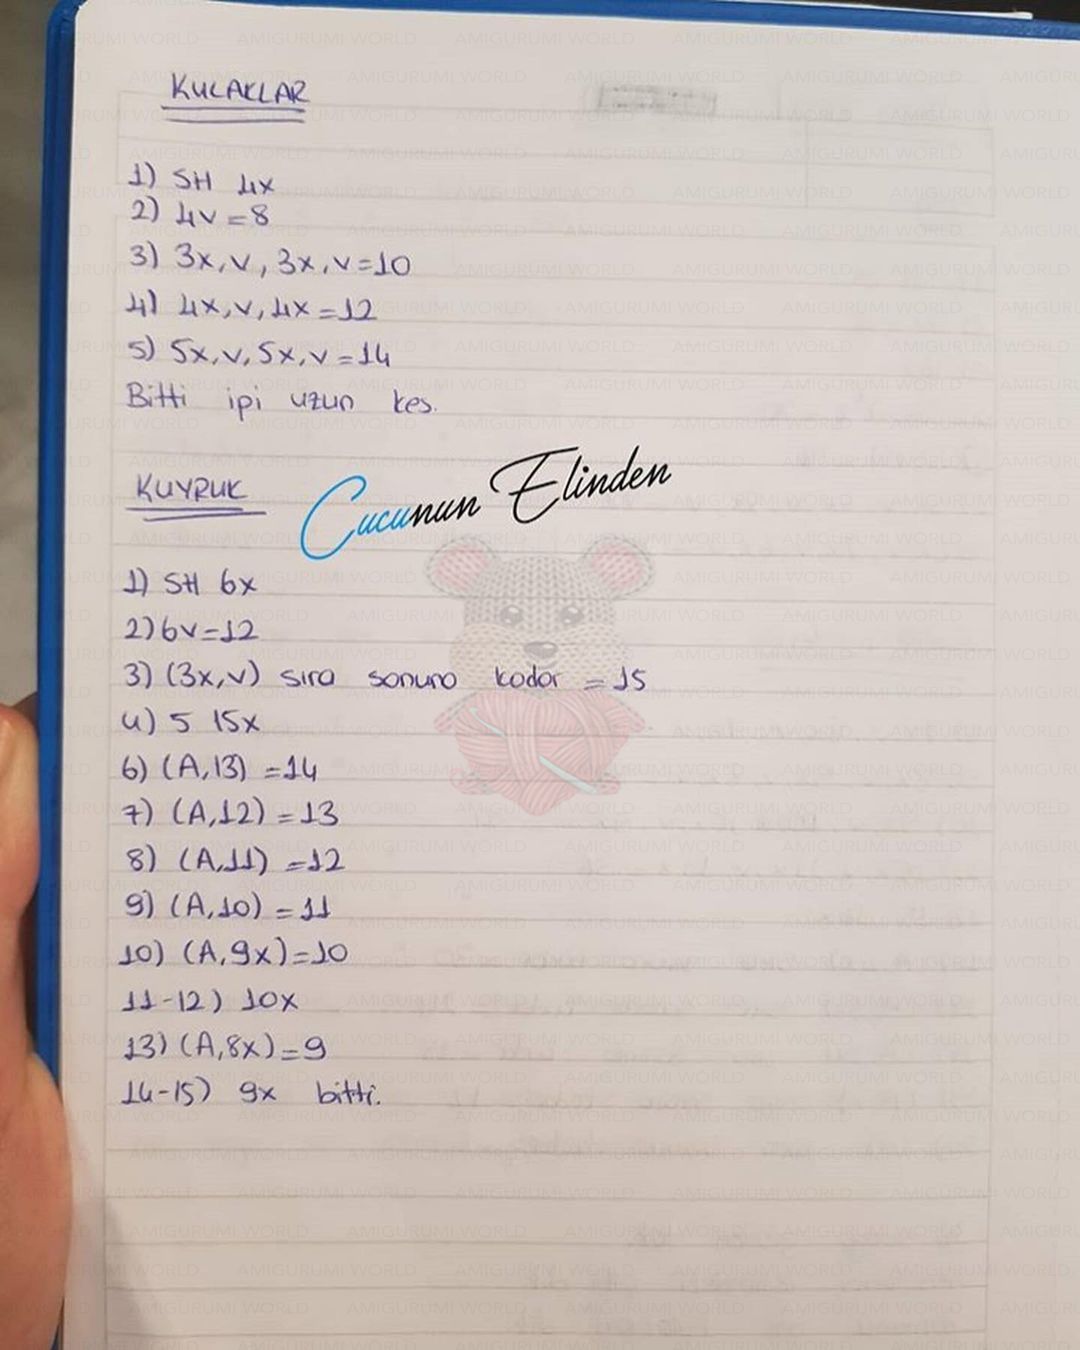 KULAKLAR
1) SH 4x
2) 4v=8
3) 3x,v,3x,v=10
4) 4x,v,4x=12
5) 5x,v,5x,v=14
Bitti ipi uzun kes.
KUYRUK
Cucunun Elinden
1) SH 6x
2) 6v=12
3) (3x,v) sıra sonuna kadar =15
4) 5 15x
6) (A,13) =14
7) (A,12) =13
8) (A,11) =12
9) (A,10) =11
10) (A,9x)=10
11-12) 10x
13) (A,8x)=9
14-15) 9x bitti.
AMIGURUMI WORLD